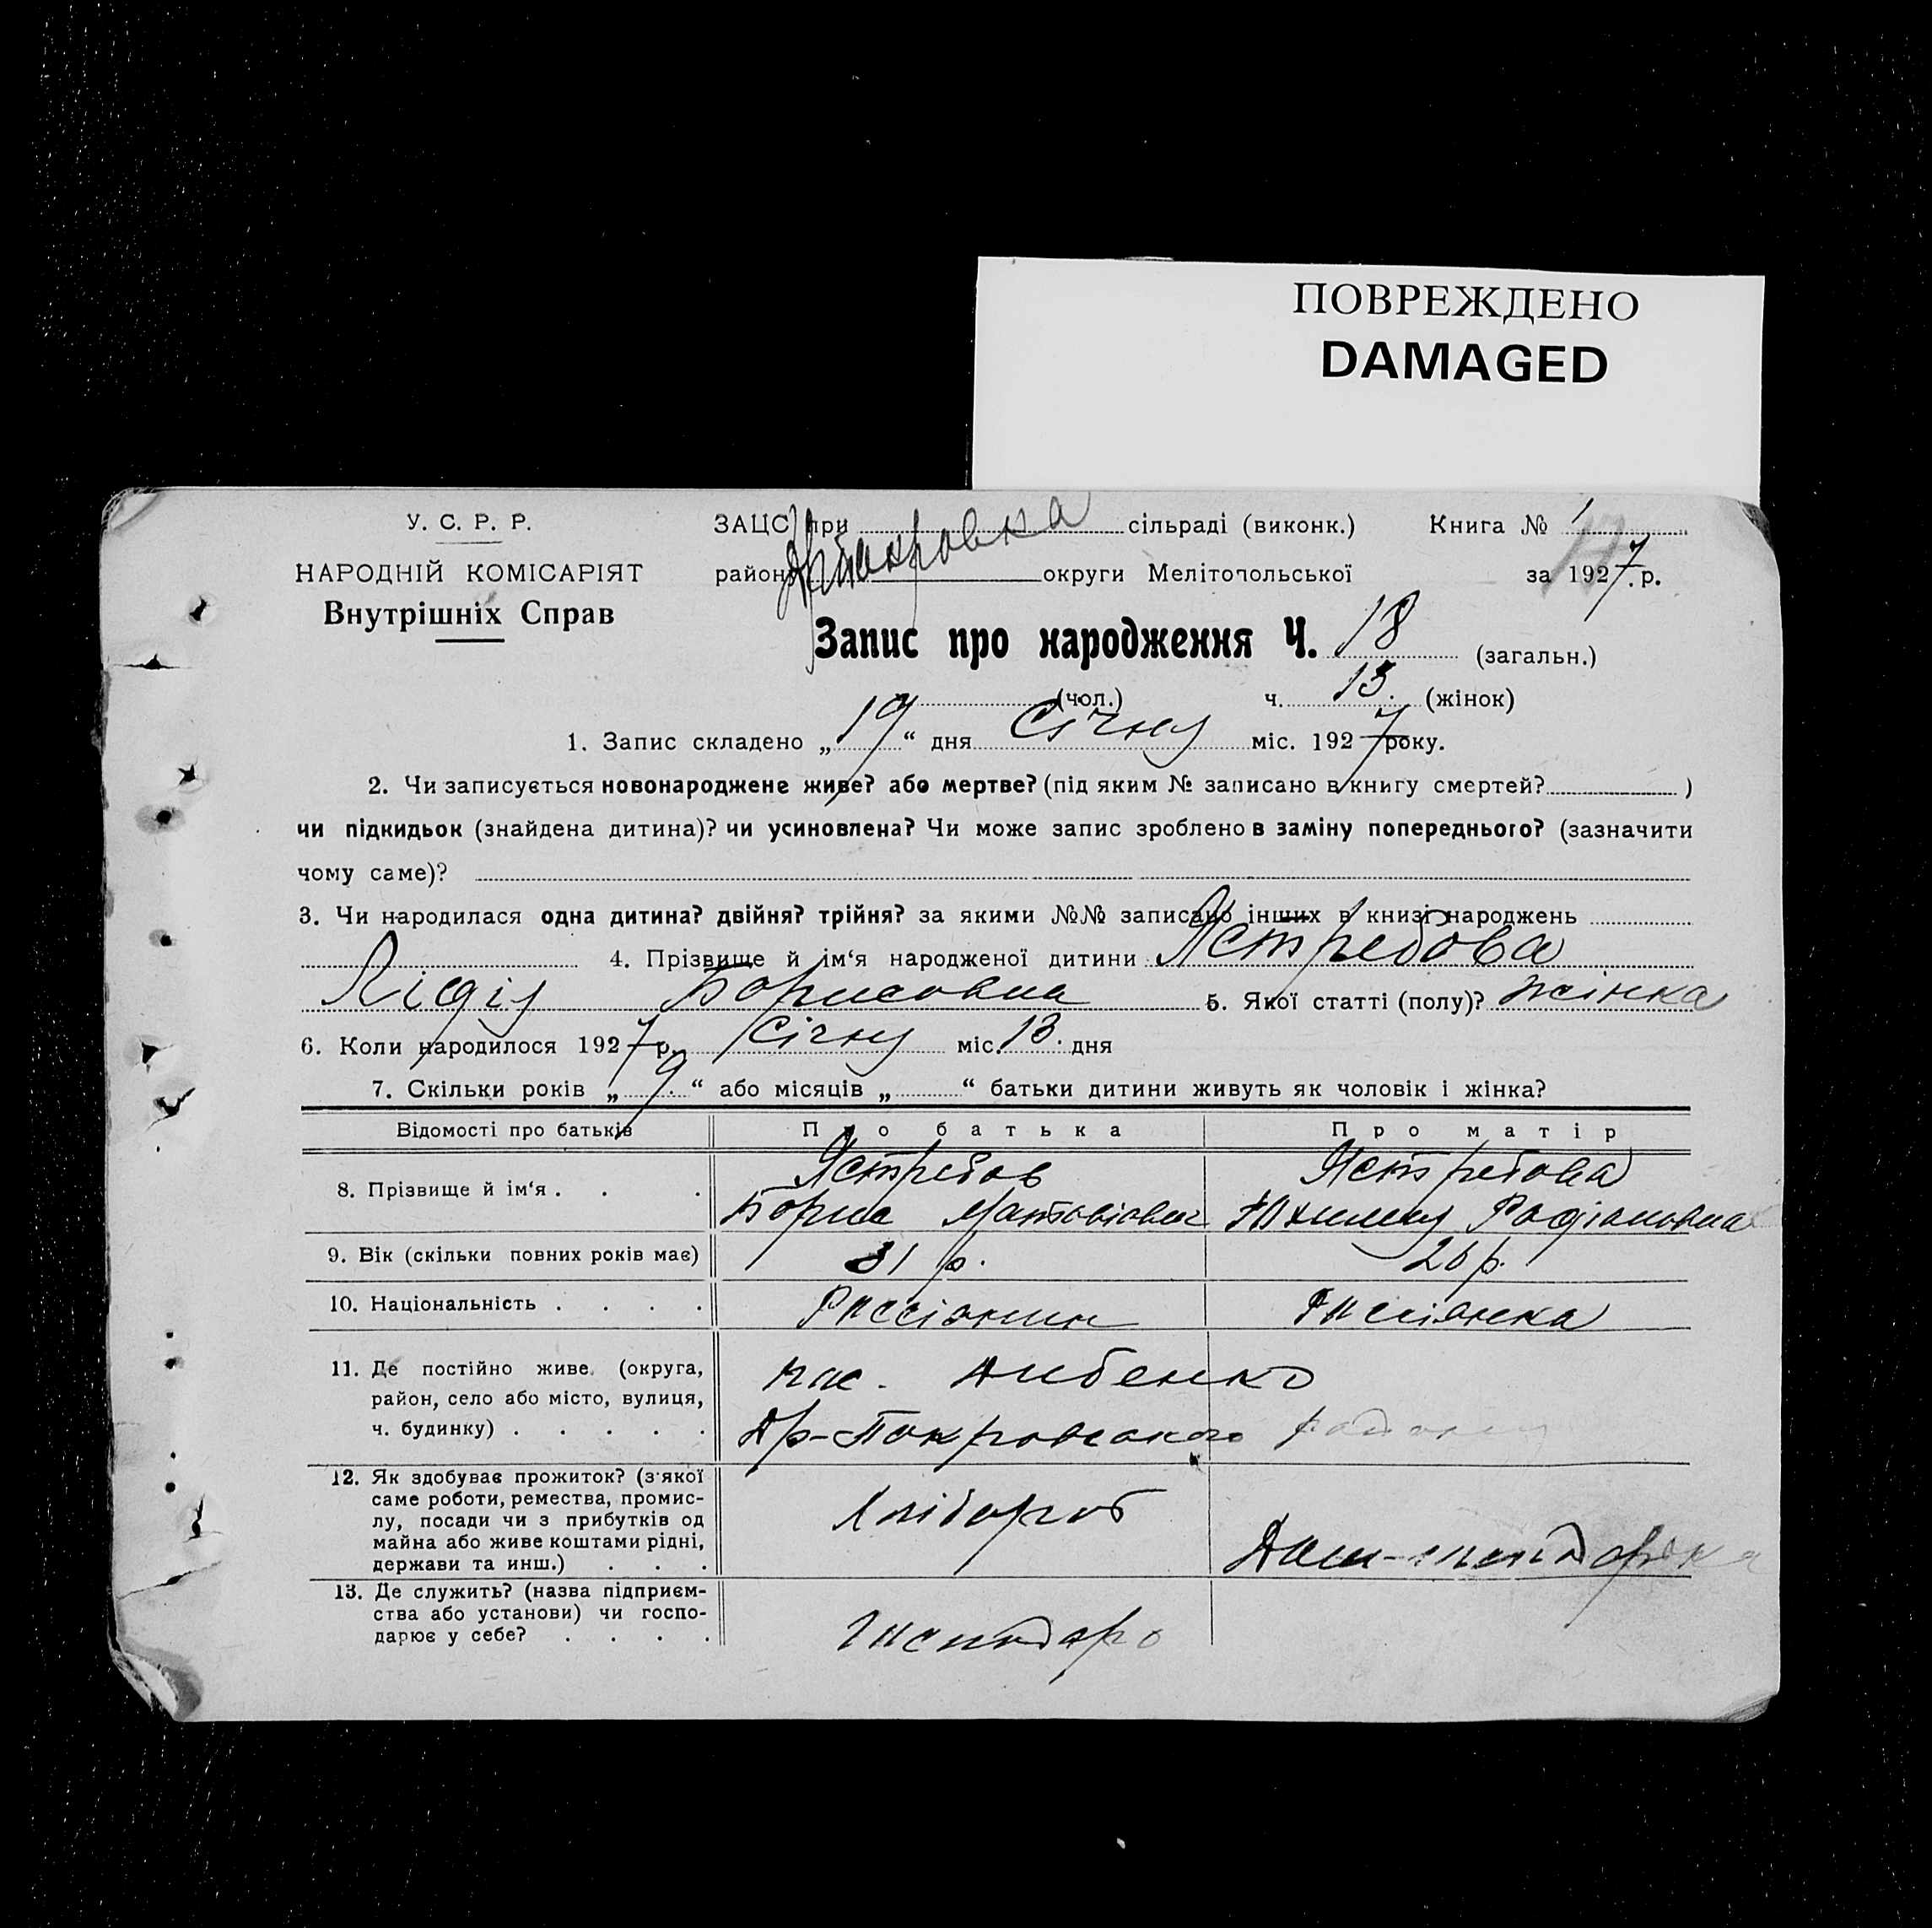 ПОВРЕЖДЕНО
DAMAGED
У. С. Р. Р.
НАРОДНІЙ КОМІСАРІЯТ
Внутрішніх Справ
ЗАЦС при сільраді (виконк.)
Книга № 1
району округи Мелітопольської
за 1927 р.
Запис про народження Ч. 18 (загальн.)
(чол.) ч. 13 (жінок)
1. Запис складено „19“ дня Січня міс. 1927 року.
2. Чи записується новонароджене живе? або мертве? (під яким № записано в книгу смертей? )
чи підкидьок (знайдена дитина)? чи усиновлена? Чи може запис зроблено в заміну попереднього? (зазначити
чому саме)?
3. Чи народилася одна дитина? двійня? трійня? за якими №№ записано інших в книзі народжень
4. Прізвище й ім‘я народженої дитини Ястребова
Лідія Борисовна 5. Якої статті (полу)? жінка
6. Коли народилося 1927 р. Січня міс. 13. дня
7. Скільки років „9“ або місяців „ “ батьки дитини живуть як чоловік і жінка?
Відомості про батьків Про батька Про матір
8. Прізвище й ім‘я . . . Ястребов Ястребова
Борис Радіоновна
9. Вік (скільки повних років має) 31 р. 26 р.
10. Національність . . . . Россіянин Россіянка
11. Де постійно живе (округа,
район, село або місто, вулиця,
ч. будинку) . . . . .
пос. Дибенко
Др-Покровського району
12. Як здобуває прожиток? (з якої
саме роботи, ремества, промис-
лу, посади чи з прибутків од
майна або живе коштами рідні,
держави та инш.) . . .
Хлібороб
Дом-господарка
13. Де служить? (назва підприєм-
ства або установи) чи госпо-
дарює у себе? . . . .